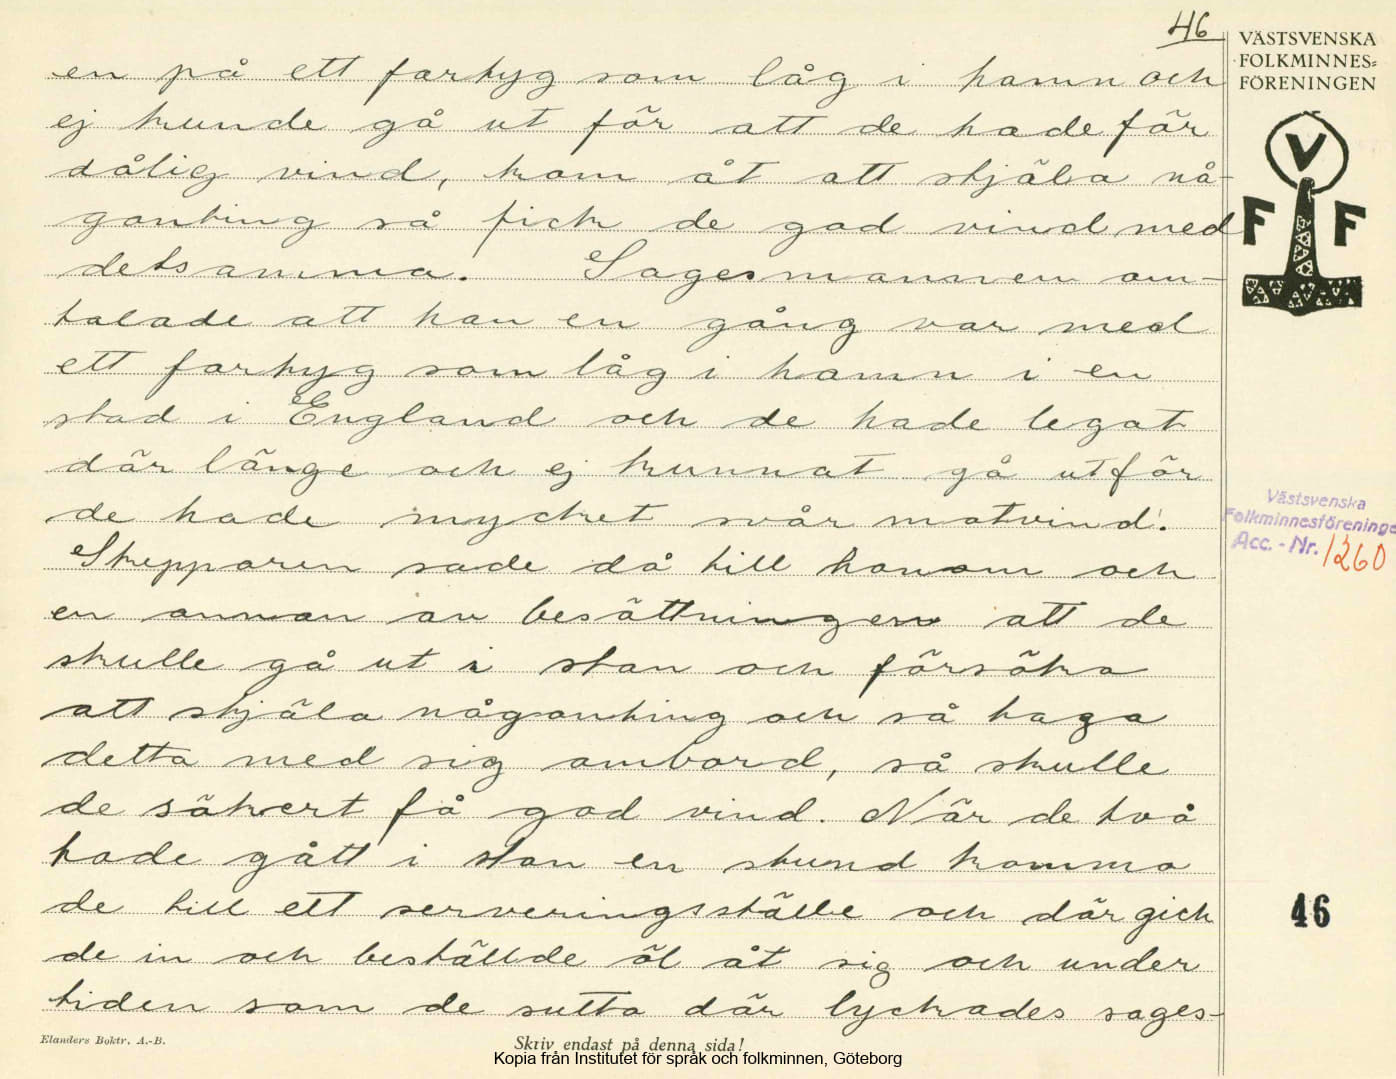 46
VÄSTSVENSKA
FOLKMINNES=
FÖRENINGEN
V
F F
en på ett fartyg som låg i hamn och
ej kunde gå ut för att de hade för
dålig vind, kom åt att stjäla nå-
gonting så fick de god vind med
detsamma. Sagesmannen om-
talade att han en gång var med
ett fartyg som låg i hamn i en
stad i England och de hade legat
där länge och ej kunnat gå ut för
de hade mycket svår motvind.
Skepparen sade då till honom och
en annan av besättningen att de
skulle gå ut i stan och försöka
att stjäla någonting och så taga
detta med sig ombord, så skulle
de säkert få god vind. När de två
hade gått i stan en stund komma
de till ett serveringsställe och där gick
de in och beställde öl åt sig och under
tiden som de sutto där lyckades sages-
Västsvenska
Folkminnesföreninge
Acc. - Nr. 1260
46
Elanders Boktr. A.-B.
Skriv endast på denna sida!
Kopia från Institutet för språk och folkminnen, Göteborg